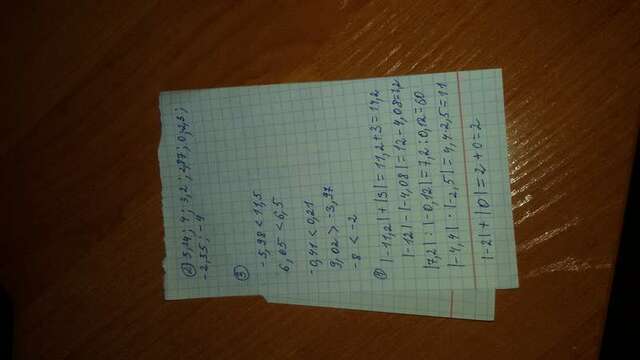 ② 5,24; 4; 3,2; 2,87; 0; 2,3;
-2,35; -4
③
-5,98 < 11,5
6,05 < 6,5
-0,41 < 0,21
9,02 > -3,97
-8 < -2
|-11,2| + |3| = 11,2+3 = 14,2
|-12| - |-4,08| = 12-4,08=
|7,2| : |-0,12| = 7,2 : 0,12 = 60
|-4,4| · |-2,5| = 4,4·2,5 = 11
|-2| + |0| = 2 + 0 = 2